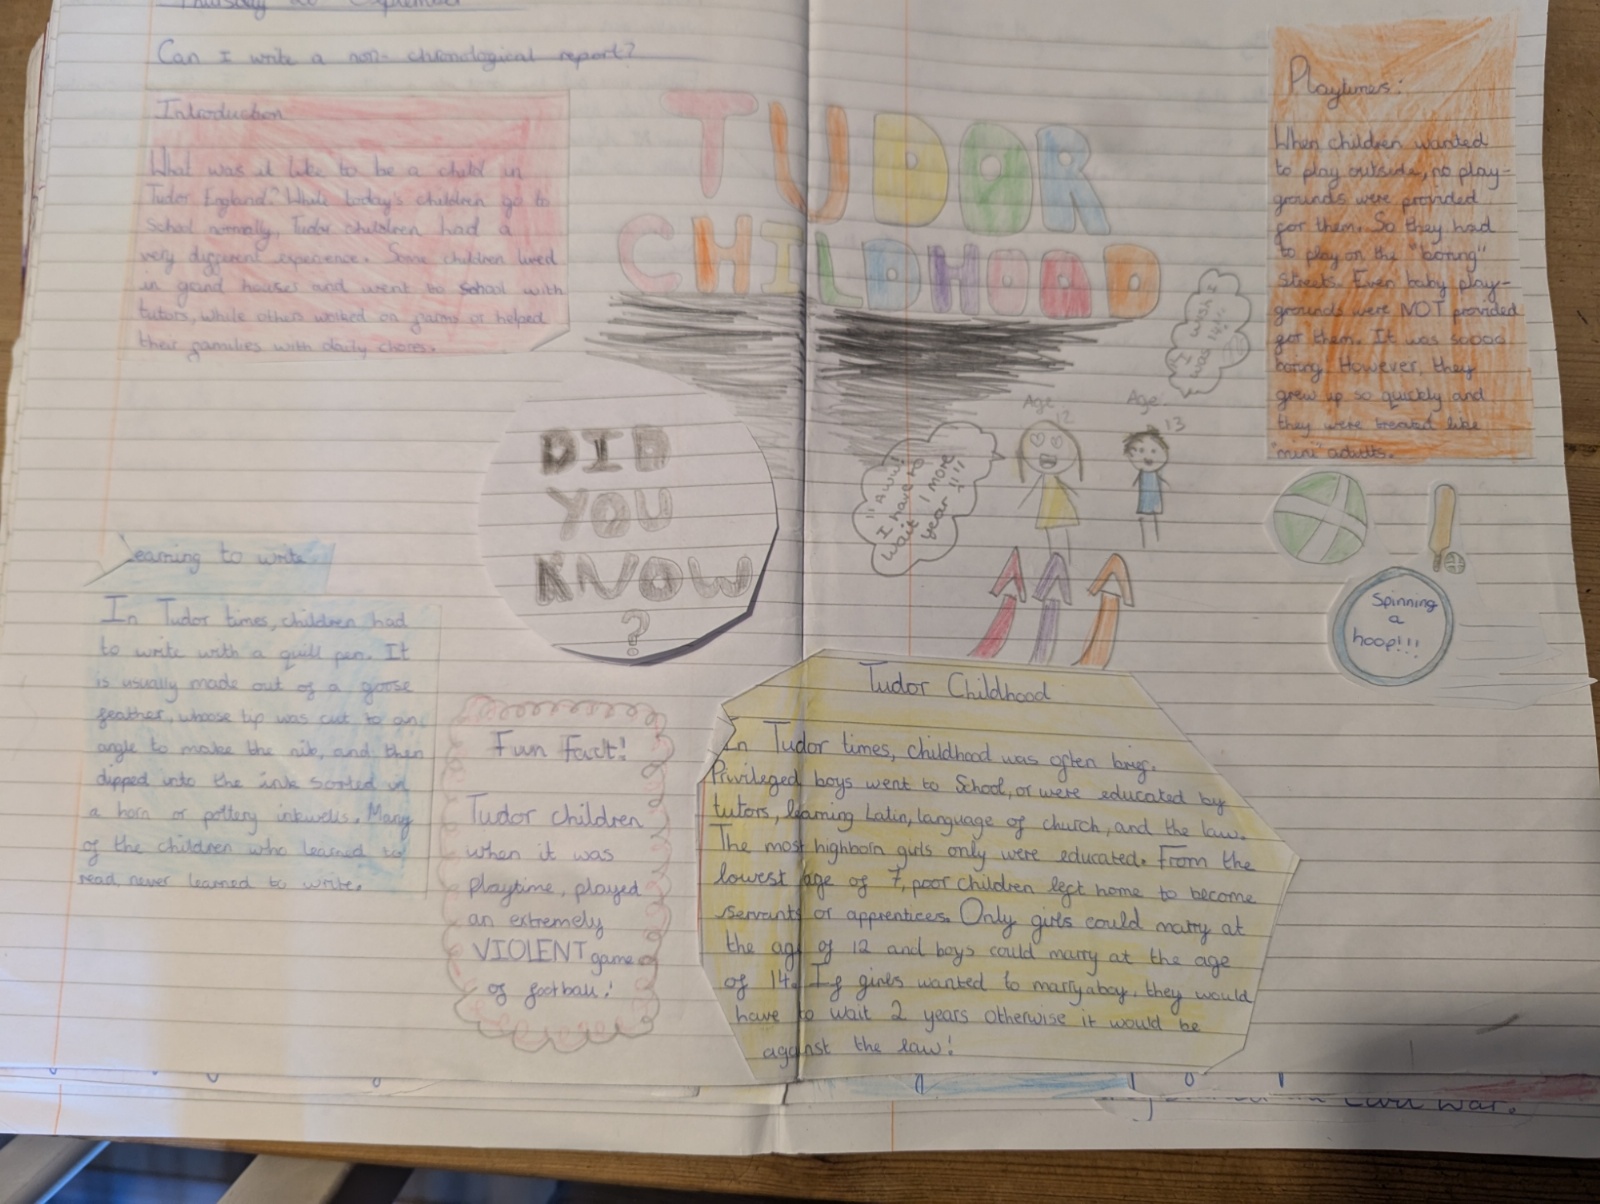 Thursday 26 September
Can I write a non-chronological report?
Introduction
What was it like to be a child in
Tudor England? While today's children go to
School normally, Tudor children had a
very different experience. Some children lived
in grand houses and went to School with
tutors, while others worked on farms or helped
their families with daily chores.
TUDOR
CHILDHOOD
Playtimes:
When children wanted
to play outside, no play-
grounds were provided
for them. So they had
to play on the "boring"
streets. Even baby play-
grounds were NOT provided
for them. It was soooo
boring. However, they
grew up so quickly and
they were treated like
"mini" adults.
I wish I
was 14!!
Age 12
Age 13
"Aww!
I have to
wait 1 more
year"!!!
DID
YOU
KNOW
?
Spinning
a
hoop!!!
Learning to write
In Tudor times, children had
to write with a quill pen. It
is usually made out of a goose
feather, whose tip was cut to an
angle to make the nib, and then
dipped into the ink sorted in
a horn or pottery inkwells. Many
of the children who learned to
read, never learned to write.
Fun Fact!
Tudor children
when it was
playtime, played
an extremely
VIOLENT game
of football!
Tudor Childhood
In Tudor times, childhood was often brief.
Privileged boys went to School, or were educated by
tutors, learning Latin, language of church, and the law.
The most highborn girls only were educated. From the
lowest age of 7, poor children left home to become
servants or apprentices. Only girls could marry at
the age of 12 and boys could marry at the age
of 14. If girls wanted to marry a boy, they would
have to wait 2 years otherwise it would be
against the law!
war.